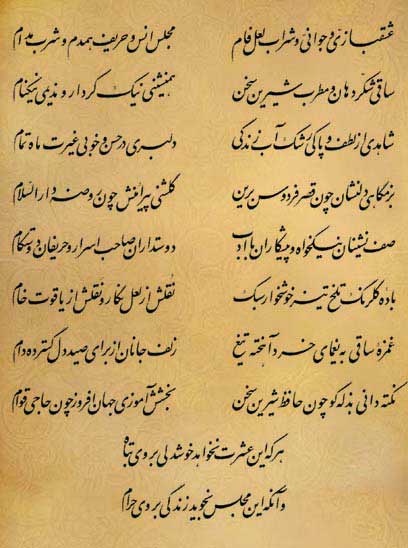 عشقبازی و جوانی و شراب لعل فام مجلس انس و حریف همدم و شرب مدام
ساقی شکر دهان و مطرب شیرین سخن همنشینی نیک کردار و ندیمی نیکنام
شاهدی از لطف و پاکی رشک آب زندگی دلبری در حسن و خوبی غیرت ماه تمام
بزمگاهی دلنشان چون قصر فردوس برین گلشنی پیرامنش چون روضه دارالسلام
صف نشینان نیکخواه و پیشکاران با ادب دوستداران صاحب اسرار و حریفان دوستکام
باده گلرنگ تلخ تیز خوشخوار سبک نقلش از لعل نگار و نقلش از یاقوت خام
غمزه ساقی به یغمای خرد آهخته تیغ زلف جانان از برای صید دل گسترده دام
نکته دانی بذله گو چون حافظ شیرین سخن بخشش آموزی جهان افروز چون حاجی قوام
هر که این عشرت نخواهد خوشدلی بر وی تباه
وآنکه این مجلس نجوید زندگی بر وی حرام